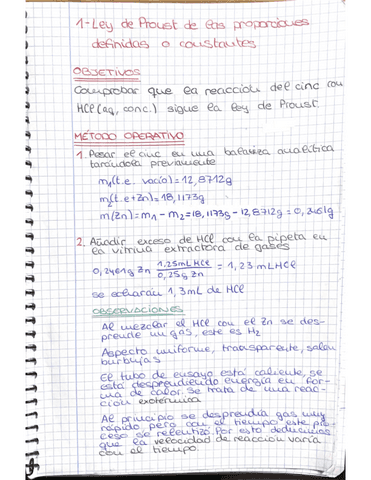 1-Ley de Proust de las proporciones
definidas o constantes
OBJETIVOS
Comprobar que la reacción del cinc con
HCl(aq, conc.) sigue la ley de Proust.
MÉTODO OPERATIVO
1. Pesar el cinc en una balanza analítica
tarándola previamente
m₁(t.e. vacío)=12,8712g
m₂(t.e+Zn)=18,1173g
m(Zn)=m₁-m₂=18,1173g-12,8712g=0,2461g
2. Añadir exceso de HCl con la pipeta en
la vitrina extractora de gases
0,2461g Zn 1,25mLHCl/0,25g Zn = 1,23 mLHCl
se echarán 1,3mL de HCl
OBSERVACIONES
Al mezclar el HCl con el Zn se des-
prende un gas, este es H₂
Aspecto uniforme, transparente, salen
burbujas
El tubo de ensayo está caliente, se
está desprendiendo energía en for-
ma de calor. Se trata de una reac-
ción exotérmica
Al principio se desprendía gas muy
rápido, pero con el tiempo este pro-
ceso se relentizó. Por esto deducimos
que la velocidad de reacción varía
con el tiempo.